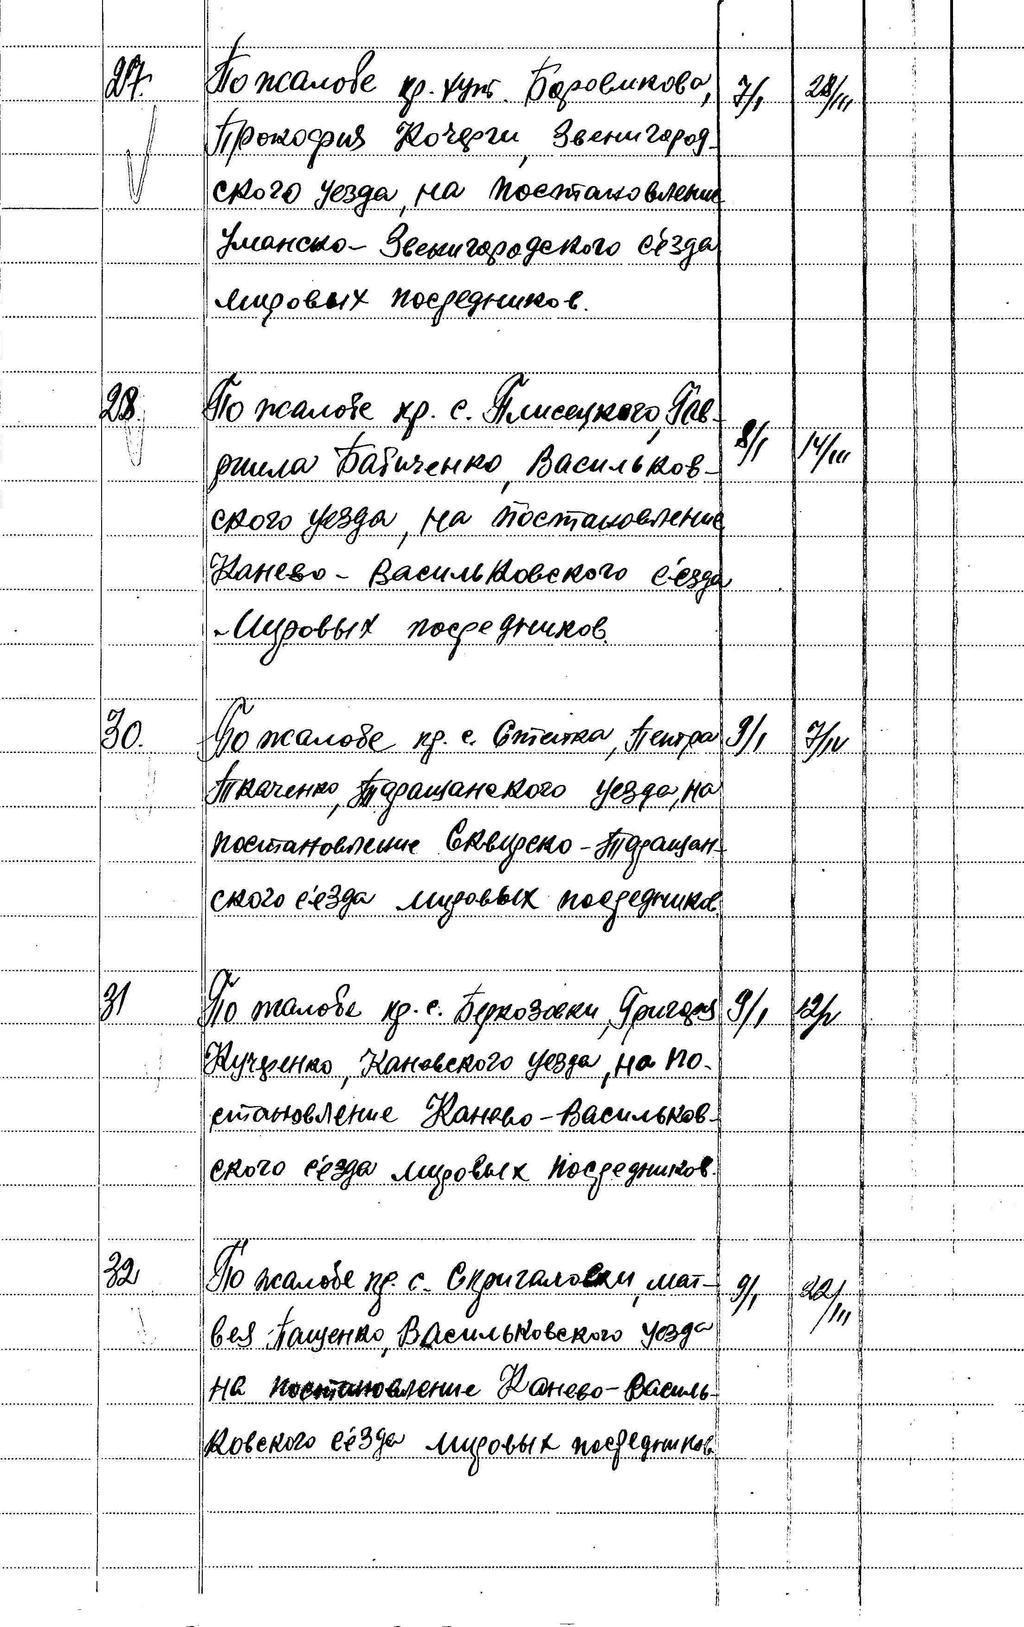 27. По жалобе кр. хут. Боровикова, 7/I 28/III
Прокофия Кочерги, Звенигород-
ского уезда, на постановление
Уманско-Звенигородского с'езда
мировых посредников.
28. По жалобе кр. с. Плисецкого, Гав- 8/I 14/III
риила Бабиченко, Васильков-
ского уезда, на постановление
Канево-Васильковского с'езда
мировых посредников.
30. По жалобе кр. с. Степка, Петра 9/I 7/IV
Ткаченко, Таращанского уезда, на
постановление Сквирско-Таращан-
ского с'езда мировых посредников.
31 По жалобе кр. с. Беркозовки, Григория 9/I
Кучеренко, Кановского уезда, на по-
становление Канево-Васильков-
ского с'езда мировых посредников.
32 По жалобе кр. с. Скригаловки, мат- 9/I 22/III
вея Пащенко, Васильковского уезда
на постановление Канево-Василь-
ковского с'езда мировых посредников